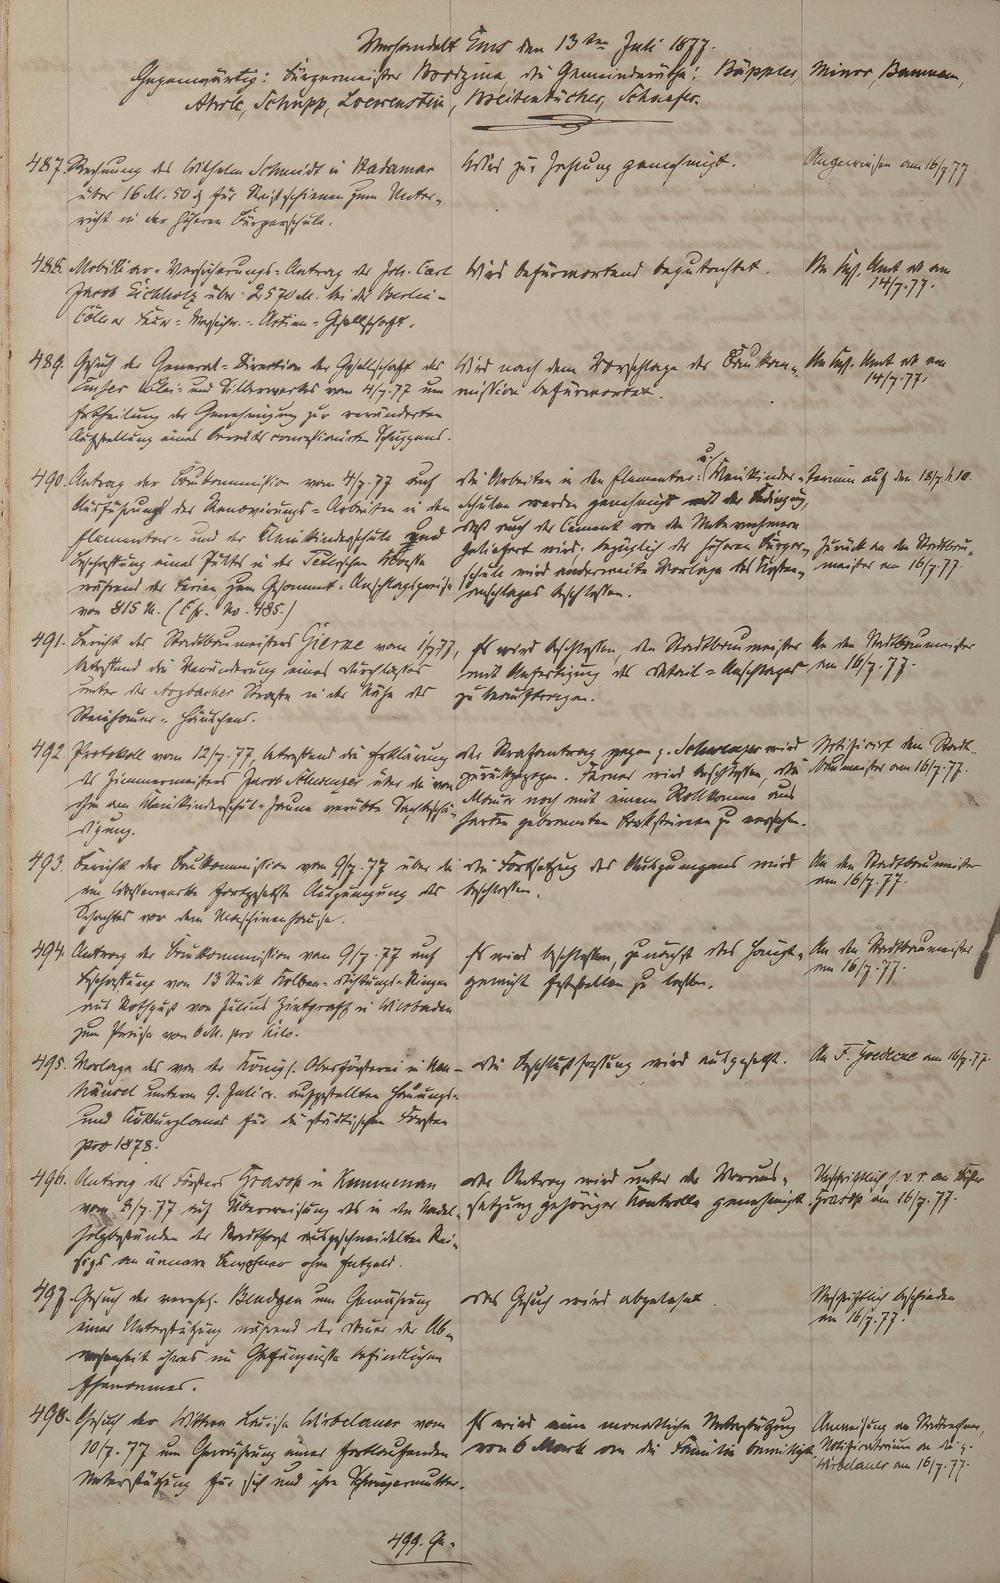 Verhandelt Ems den 13ten Juli 1877.
Gegenwärtig: Bürgermeister Brodzina, die Gemeinderäthe: Büppler, Minor, Baumann,
Ahrle, Schupp, Loewenstein, Breitenbücher, Schaefer.
487. Rechnung des Wilhelm Schmidt in Hadamar
über 16 M. 50 ₰ für Reißschienen zum Unter-
richt in der höheren Bürgerschule.
Wird zur Zahlung genehmigt.
Angewiesen am 16/7.77
488. Mobiliar-Versicherungs-Antrag des Joh. Carl
Jacob Eichholz über 2570 M. bei der Berlin-
Cölner Feuer-Versicher.-Actien-Gesellschaft.
Wird befürwortend begutachtet.
An Kgl. Amt ab am
14/7.77.
489. Gesuch der General-Direction der Gesellschaft des
Emser Blei- und Silberwerkes vom 4/7.77 um
Ertheilung der Genehmigung zur veränderten
Aufstellung eines bereits concessionirten
Wird nach dem Vorschlage der Baukom-
mission befürwortet.
An Kgl. Amt ab am
14/7.77.
490. Antrag der Baukommission vom 4/7.77 auf
Ausführung der Renovirungs-Arbeiten in den
Elementar- und der Kleinkinderschule und
Beschaffung eines Pultes in der
während der Ferien zum Gesammt-Anschlagspreise
von 815 M. (Cfr. No. 485.)
Die Arbeiten in den Elementar- u. Kleinkinder-
Schulen werden genehmigt mit der Bedingung,
daß auch der Cement von den Unternehmern
geliefert wird; bezüglich der höheren Bürger-
schule wird anderweite Vorlage des Kosten-
anschlages beschlossen.
Termin auf den 18/7. h. 10.
Zurück an den Stadtbau-
meister am 16/7.77.
491. Bericht des Stadtbaumeisters Gierne vom 1/7.77,
betreffend die Veränderung eines Durchlasses
unter der Arzbacher Straße in der Nähe des
Steinhauer-Häuschens.
Es wird beschlossen, den Stadtbaumeister
mit Anfertigung des Detail-Anschlages
zu beauftragen.
An den Stadtbaumeister
am 16/7.77.
492. Protokoll vom 12/7.77, betreffend die Erklärung
des Zimmermeisters Jacob Schwenzer über die von
ihm am Kleinkinderschul-Zaune verübte Sachbeschä-
digung.
Der Strafantrag gegen p. Schwenzer wird
zurückgezogen. Ferner wird beschlossen, die
Mauer noch mit einem Rollkamme aus
harten gebrannten Backsteinen zu versehen.
Notificirt dem Stadt-
baumeister am 16/7.77.
493. Bericht der Baukommission vom 9/7.77 über die
am Wasserwerke fortgesetzte Auspumpung des
Schachtes vor dem Maschinenhause.
Die Fortsetzung des Auspumpens wird
beschlossen.
An den Stadtbaumeister
am 16/7.77.
494. Antrag der Baukommission vom 9/7.77 auf
Beschaffung von 13 Stück Kolben-Dichtungs-Ringen
aus Rothguß von Julius Zintgraff in Wiesbaden
zum Preise von 6 M. pro Kilo.
Es wird beschlossen, zunächst das Haupt-
gewicht feststellen zu lassen.
An den Stadtbaumeister
am 16/7.77.
495. Vorlage des von der Königl. Oberförsterei in Neu-
häusel unterm 9. Juli cr. aufgestellten Hauungs-
und Kulturplanes für die städtischen Forsten
pro 1878.
Die Beschlußfassung wird ausgesetzt.
An F. Goedecke am 16/7.77.
496. Antrag des Försters Grasop in Kemmenau
vom 8/7.77 auf Überweisung des in den Nadel-
holzbeständen der Stadtforst ausgeschneidelten Rei-
sigs an ärmere Bewohner ohne Entgeld.
Der Antrag wird unter der Voraus-
setzung gehöriger Kontrolle genehmigt.
Urschriftlich s. v. r. an Förster
Grasop am 16/7.77.
497. Gesuch der verehel. Bendgen um Gewährung
einer Unterstützung während der Dauer der Ab-
wesenheit ihres im Gefängnisse befindlichen
Ehemannes.
Das Gesuch wird abgelehnt.
Urschriftlich beschieden
am 16/7.77.
498. Gesuch der Wittwe Louise Wirbelauer vom
10/7.77 um Gewährung einer fortlaufenden
Unterstützung für sich und ihre Schwiegermutter.
Es wird eine monatliche Unterstützung
von 6 Mark an die Familie bewilligt.
Anweisung an Stadtrechner,
Notificatorium an die p.
Wirbelauer am 16/7.77.
499. Ge-